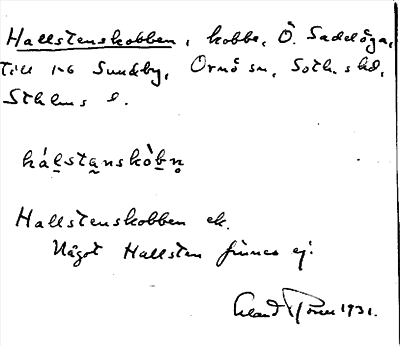 Hallstenskobben, kobbe, Ö. Sadelöga,
till 1-6 Sundby, Ornö sn, Soth.s hd,
Sthlms l.
hálstanskòbn̥
Hallstenskobben ek.
Något Hallsten finnes ej.
1931.